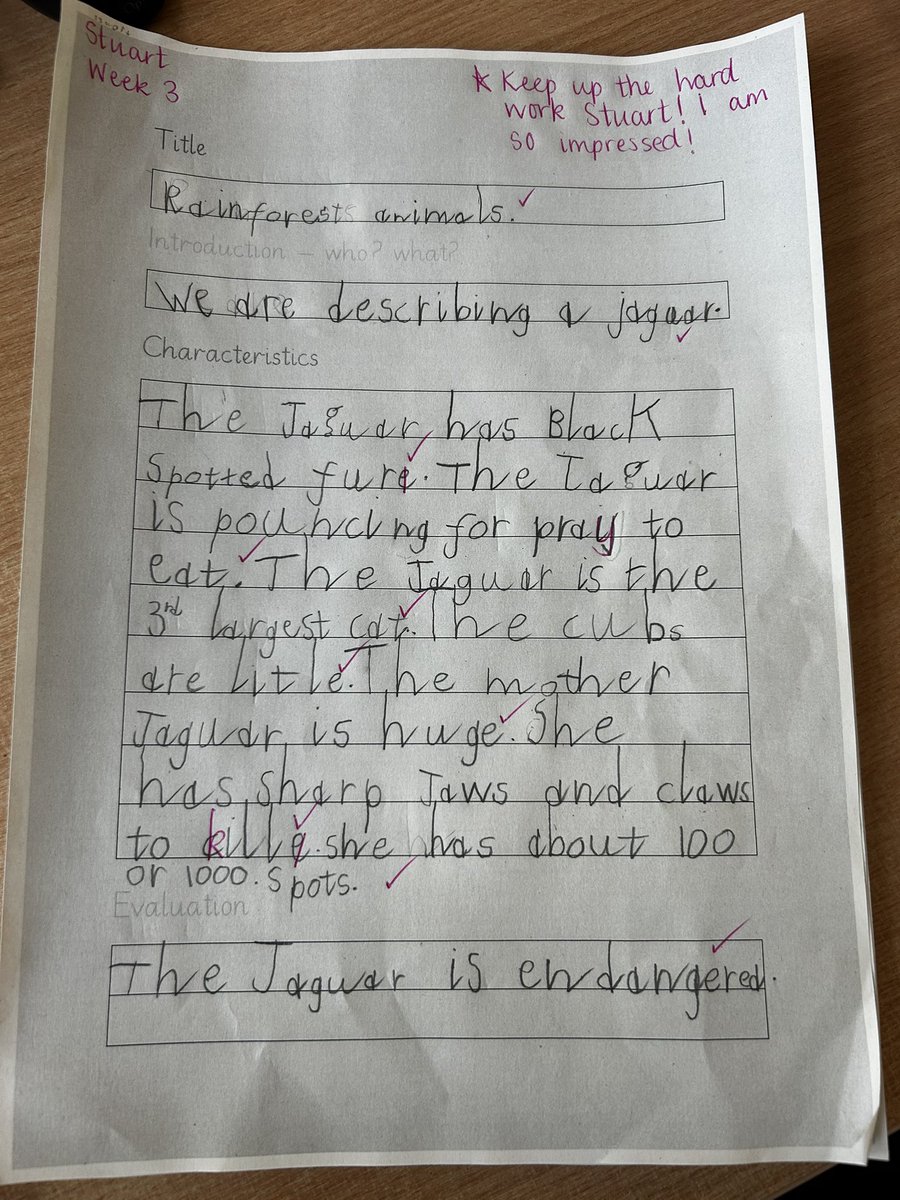 Stuart
Week 3
* Keep up the hard
work Stuart! I am
so impressed!
Title
Rainforests animals.
Introduction – who? what?
We are describing a jaguar.
Characteristics
The Jaguar has Black
Spotted fur. The Jaguar
is pouncing for pray to
eat. The Jaguar is the
3rd largest cat. The cubs
are little. The mother
Jaguar is huge. She
has sharp Jaws and claws
to kill. she has about 100
or 1000. Spots.
Evaluation
The Jaguar is endangered.